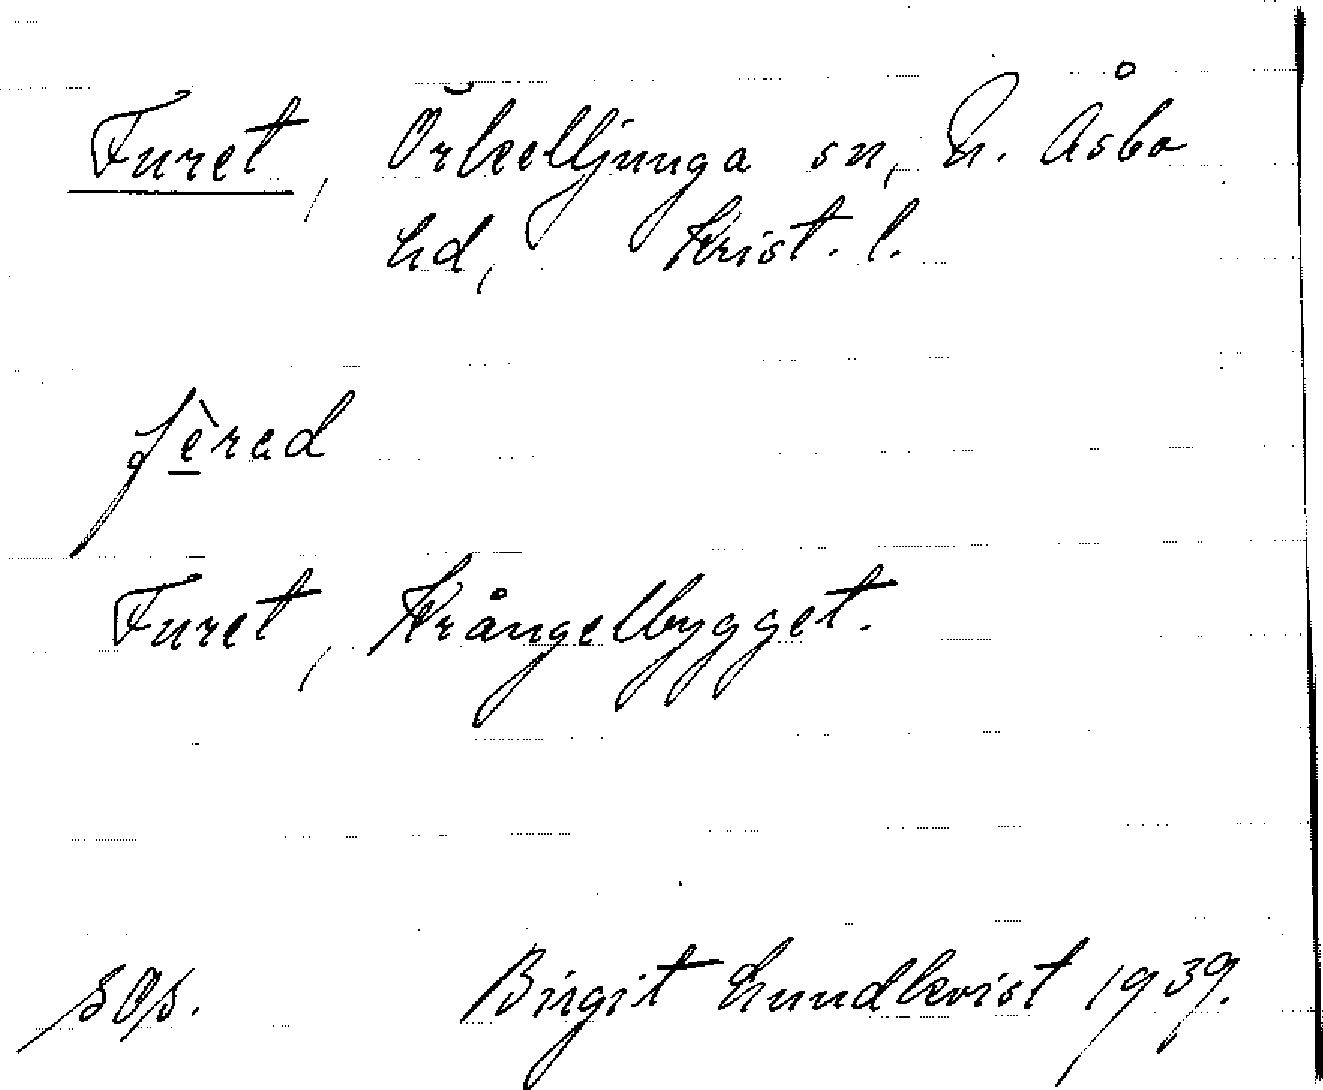 Furet, Örkelljunga sn, N. Åsbo
hd, Krist. l.
fèrad
Furet, Krångelbygget.
Birgit Lundkvist 1939.